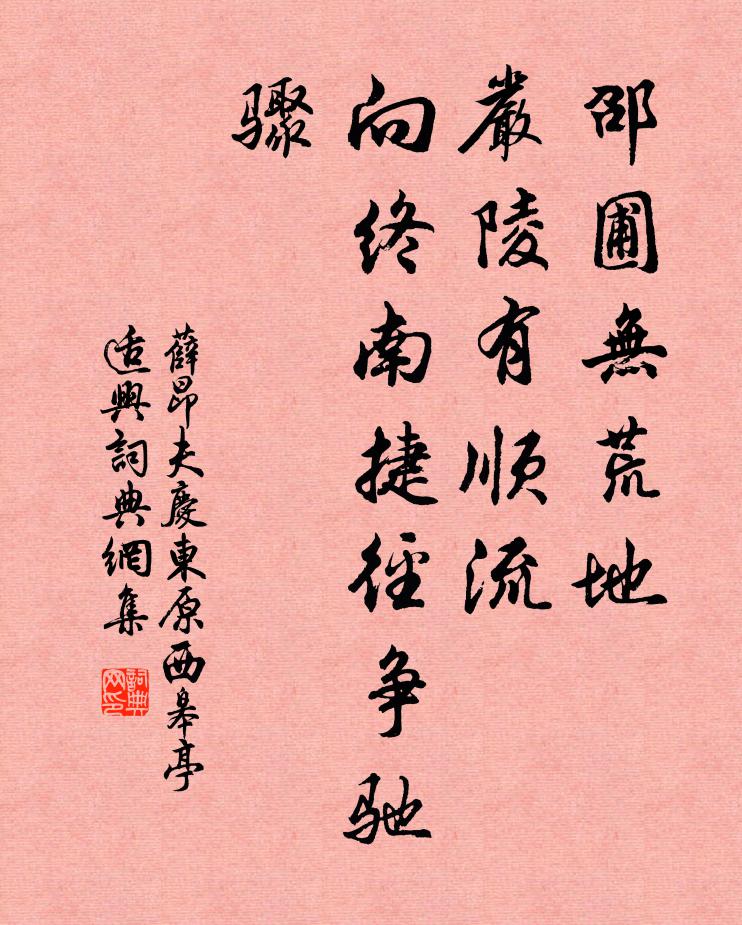 邵圃無荒地
嚴陵有順流
向終南捷徑争驰
骤
薛昂夫慶東原西皋亭
适興詞典網集
詞典網印